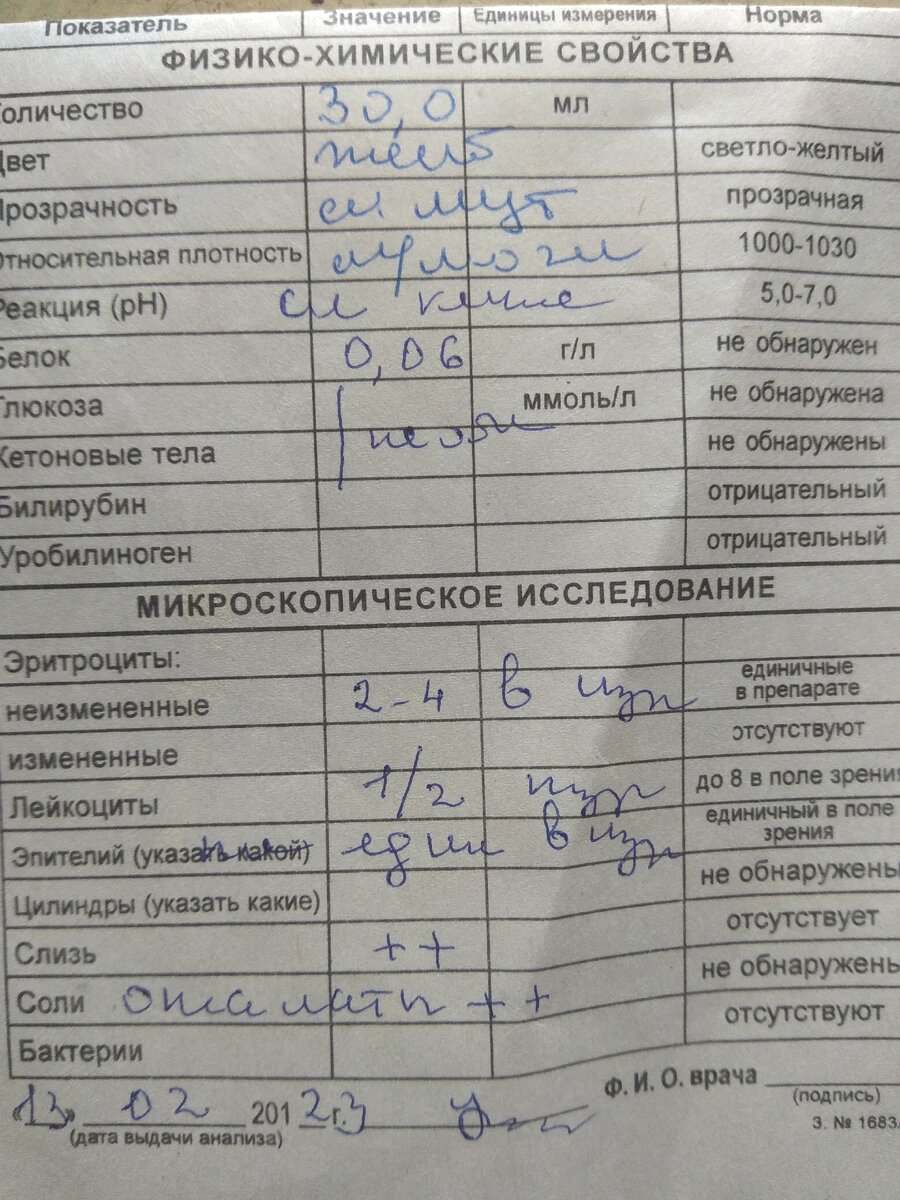 Показатель Значение Единицы измерения Норма
ФИЗИКО-ХИМИЧЕСКИЕ СВОЙСТВА
оличество 30,0 мл
Цвет желт светло-желтый
Прозрачность сл мут прозрачная
Относительная плотность м/мочи 1000-1030
Реакция (pH) сл кисле 5,0-7,0
Белок 0,06 г/л не обнаружен
Глюкоза ммоль/л не обнаружена
Кетоновые тела не обн не обнаружены
Билирубин отрицательный
Уробилиноген отрицательный
МИКРОСКОПИЧЕСКОЕ ИССЛЕДОВАНИЕ
Эритроциты: единичные
неизмененные 2-4 в п/зр в препарате
измененные отсутствуют
Лейкоциты 1/2 п/зр до 8 в поле зрения
Эпителий (указать какой) един в п/зр единичный в поле
зрения
Цилиндры (указать какие) не обнаружены
Слизь ++ отсутствует
Соли оксалаты ++ не обнаружены
Бактерии отсутствуют
«13» 02 2012г.3 Ф. И. О. врача
(дата выдачи анализа) (подпись)
З. № 1683